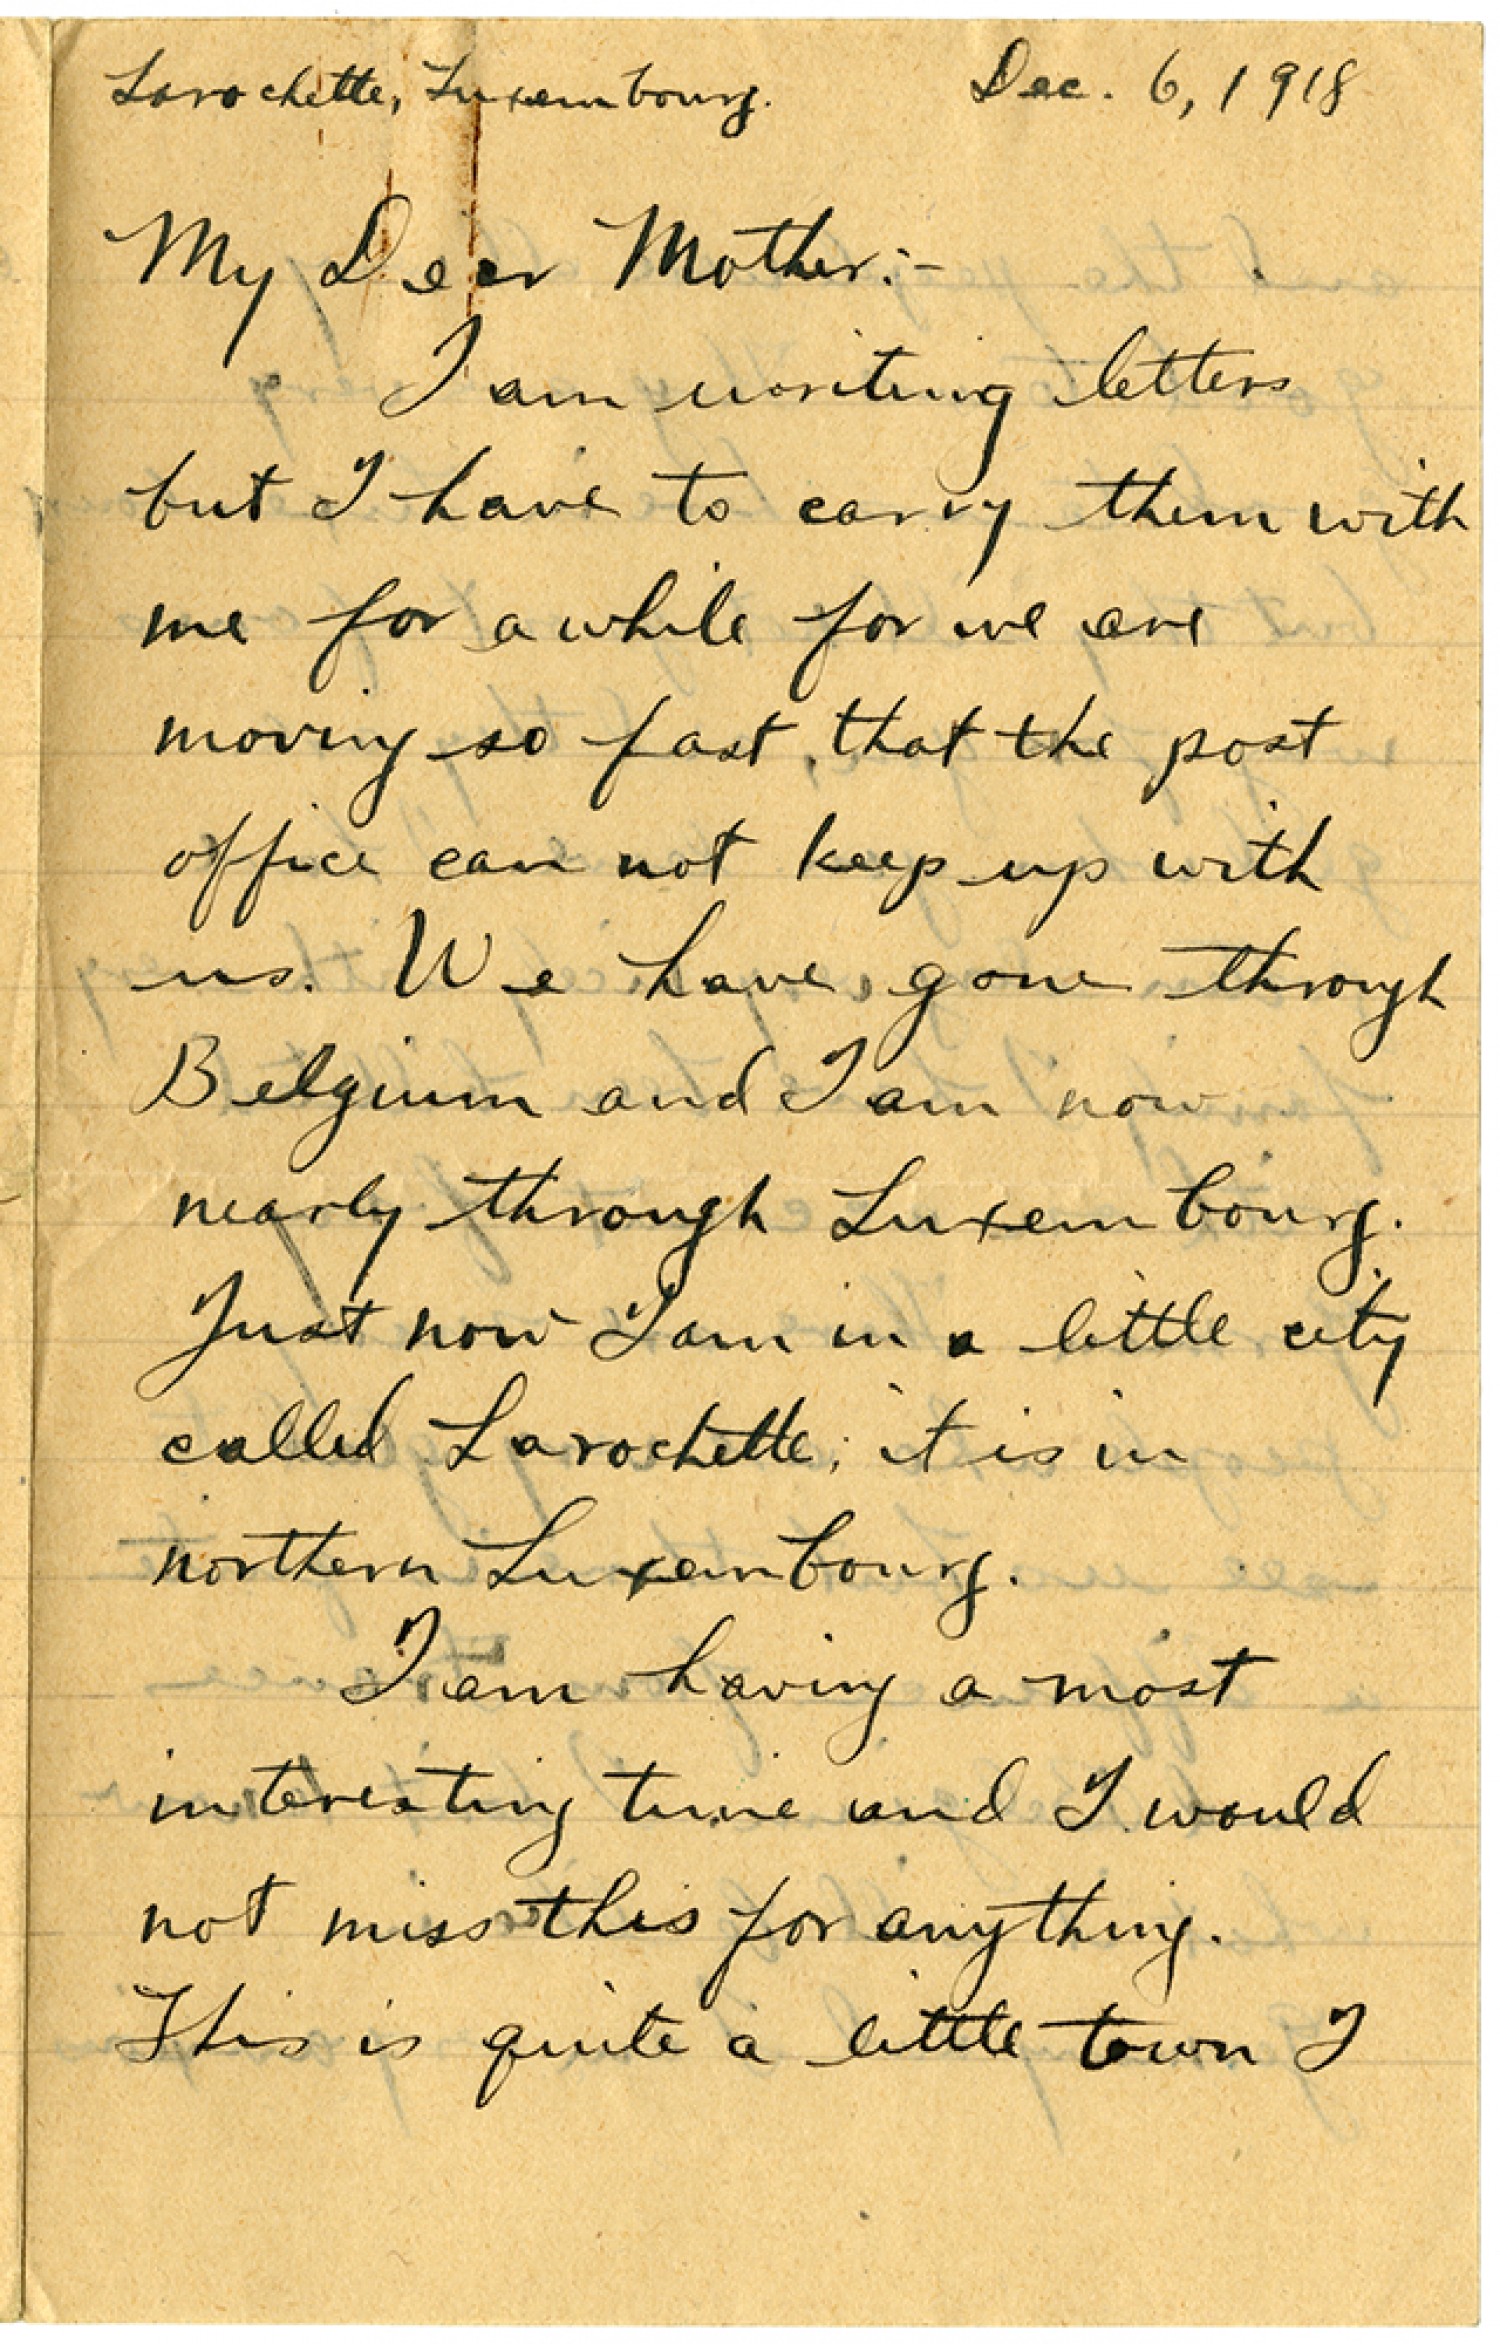 Larochette, Luxembourg. Dec. 6, 1918
My Dear Mother:-
I am writing letters
but I have to carry them with
me for awhile for we are
moving so fast, that the post
office can not keep up with
us. We have gone through
Belgium and I am now
nearly through Luxembourg.
Just now I am in a little city
called Larochette; it is in
northern Luxembourg.
I am having a most
interesting time and I would
not miss this for anything.
This is quite a little town I